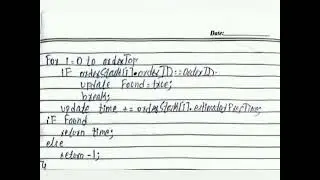 Date:
For i=0 to orderTop
if orderStack[i].orderID == orderID.
update Found=true;
break;
update time += orderStack[i].estimatedPrepTime;
if Found
return time;
else
return -1;